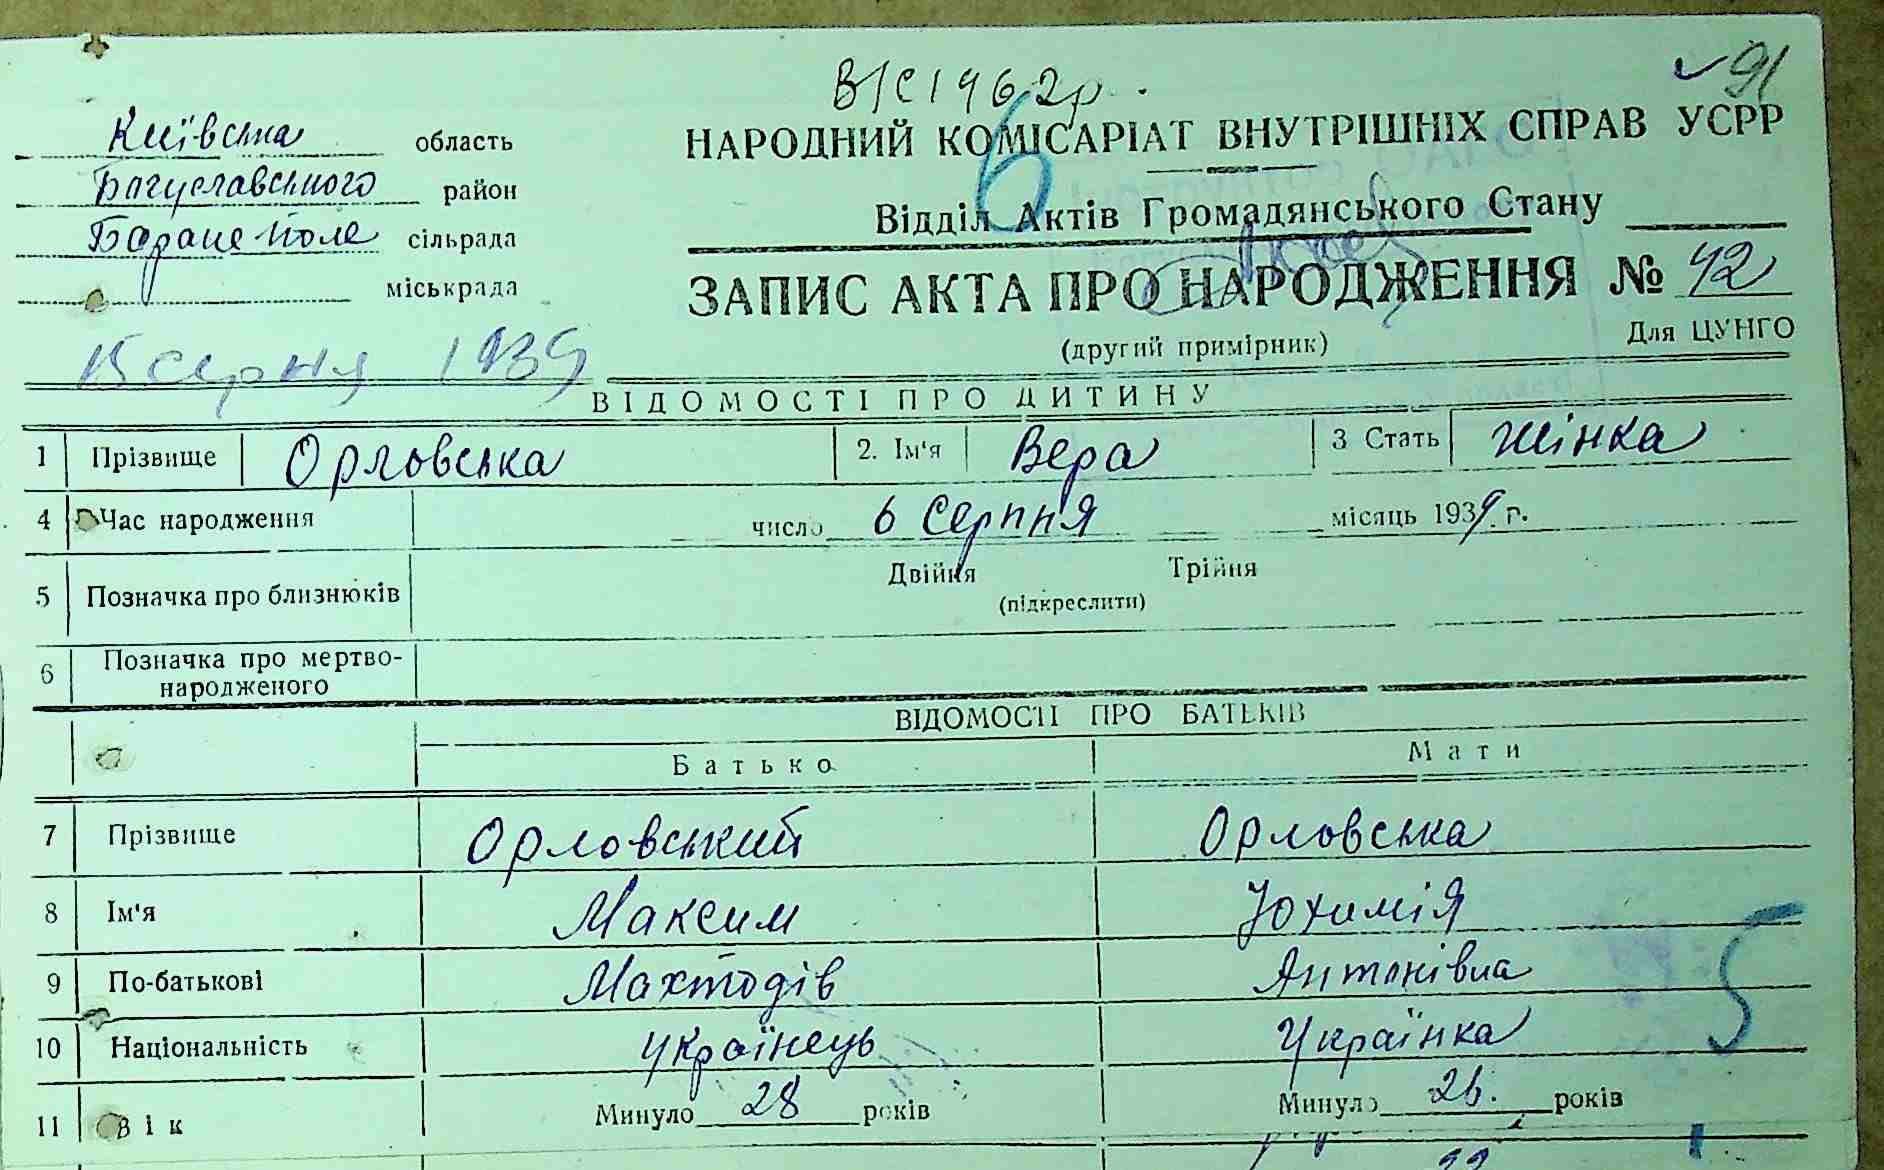 В/С 1962р.
91
Київська область
Богуславського район
Баране-Поле сільрада
міськрада
НАРОДНИЙ КОМІСАРІАТ ВНУТРІШНІХ СПРАВ УСРР
6
Відділ Актів Громадянського Стану
ЗАПИС АКТА ПРО НАРОДЖЕННЯ № 42
(другий примірник)
Для ЦУНГО
15 серпня 1939
ВІДОМОСТІ ПРО ДИТИНУ
1 Прізвище Орловська 2. Ім'я Вера 3 Стать жінка
4 Час народження число 6 Серпня місяць 1939 г.
5 Позначка про близнюків Двійня Трійня
(підкреслити)
6 Позначка про мертво-
народженого
ВІДОМОСТІ ПРО БАТЬКІВ
Батько Мати
7 Прізвище Орловський Орловська
8 Ім'я Максим Юхимія
9 По-батькові Махтодів Антонівна
10 Національність Українець Українка
11 Вік Минуло 28 років Минуло 26. років
5